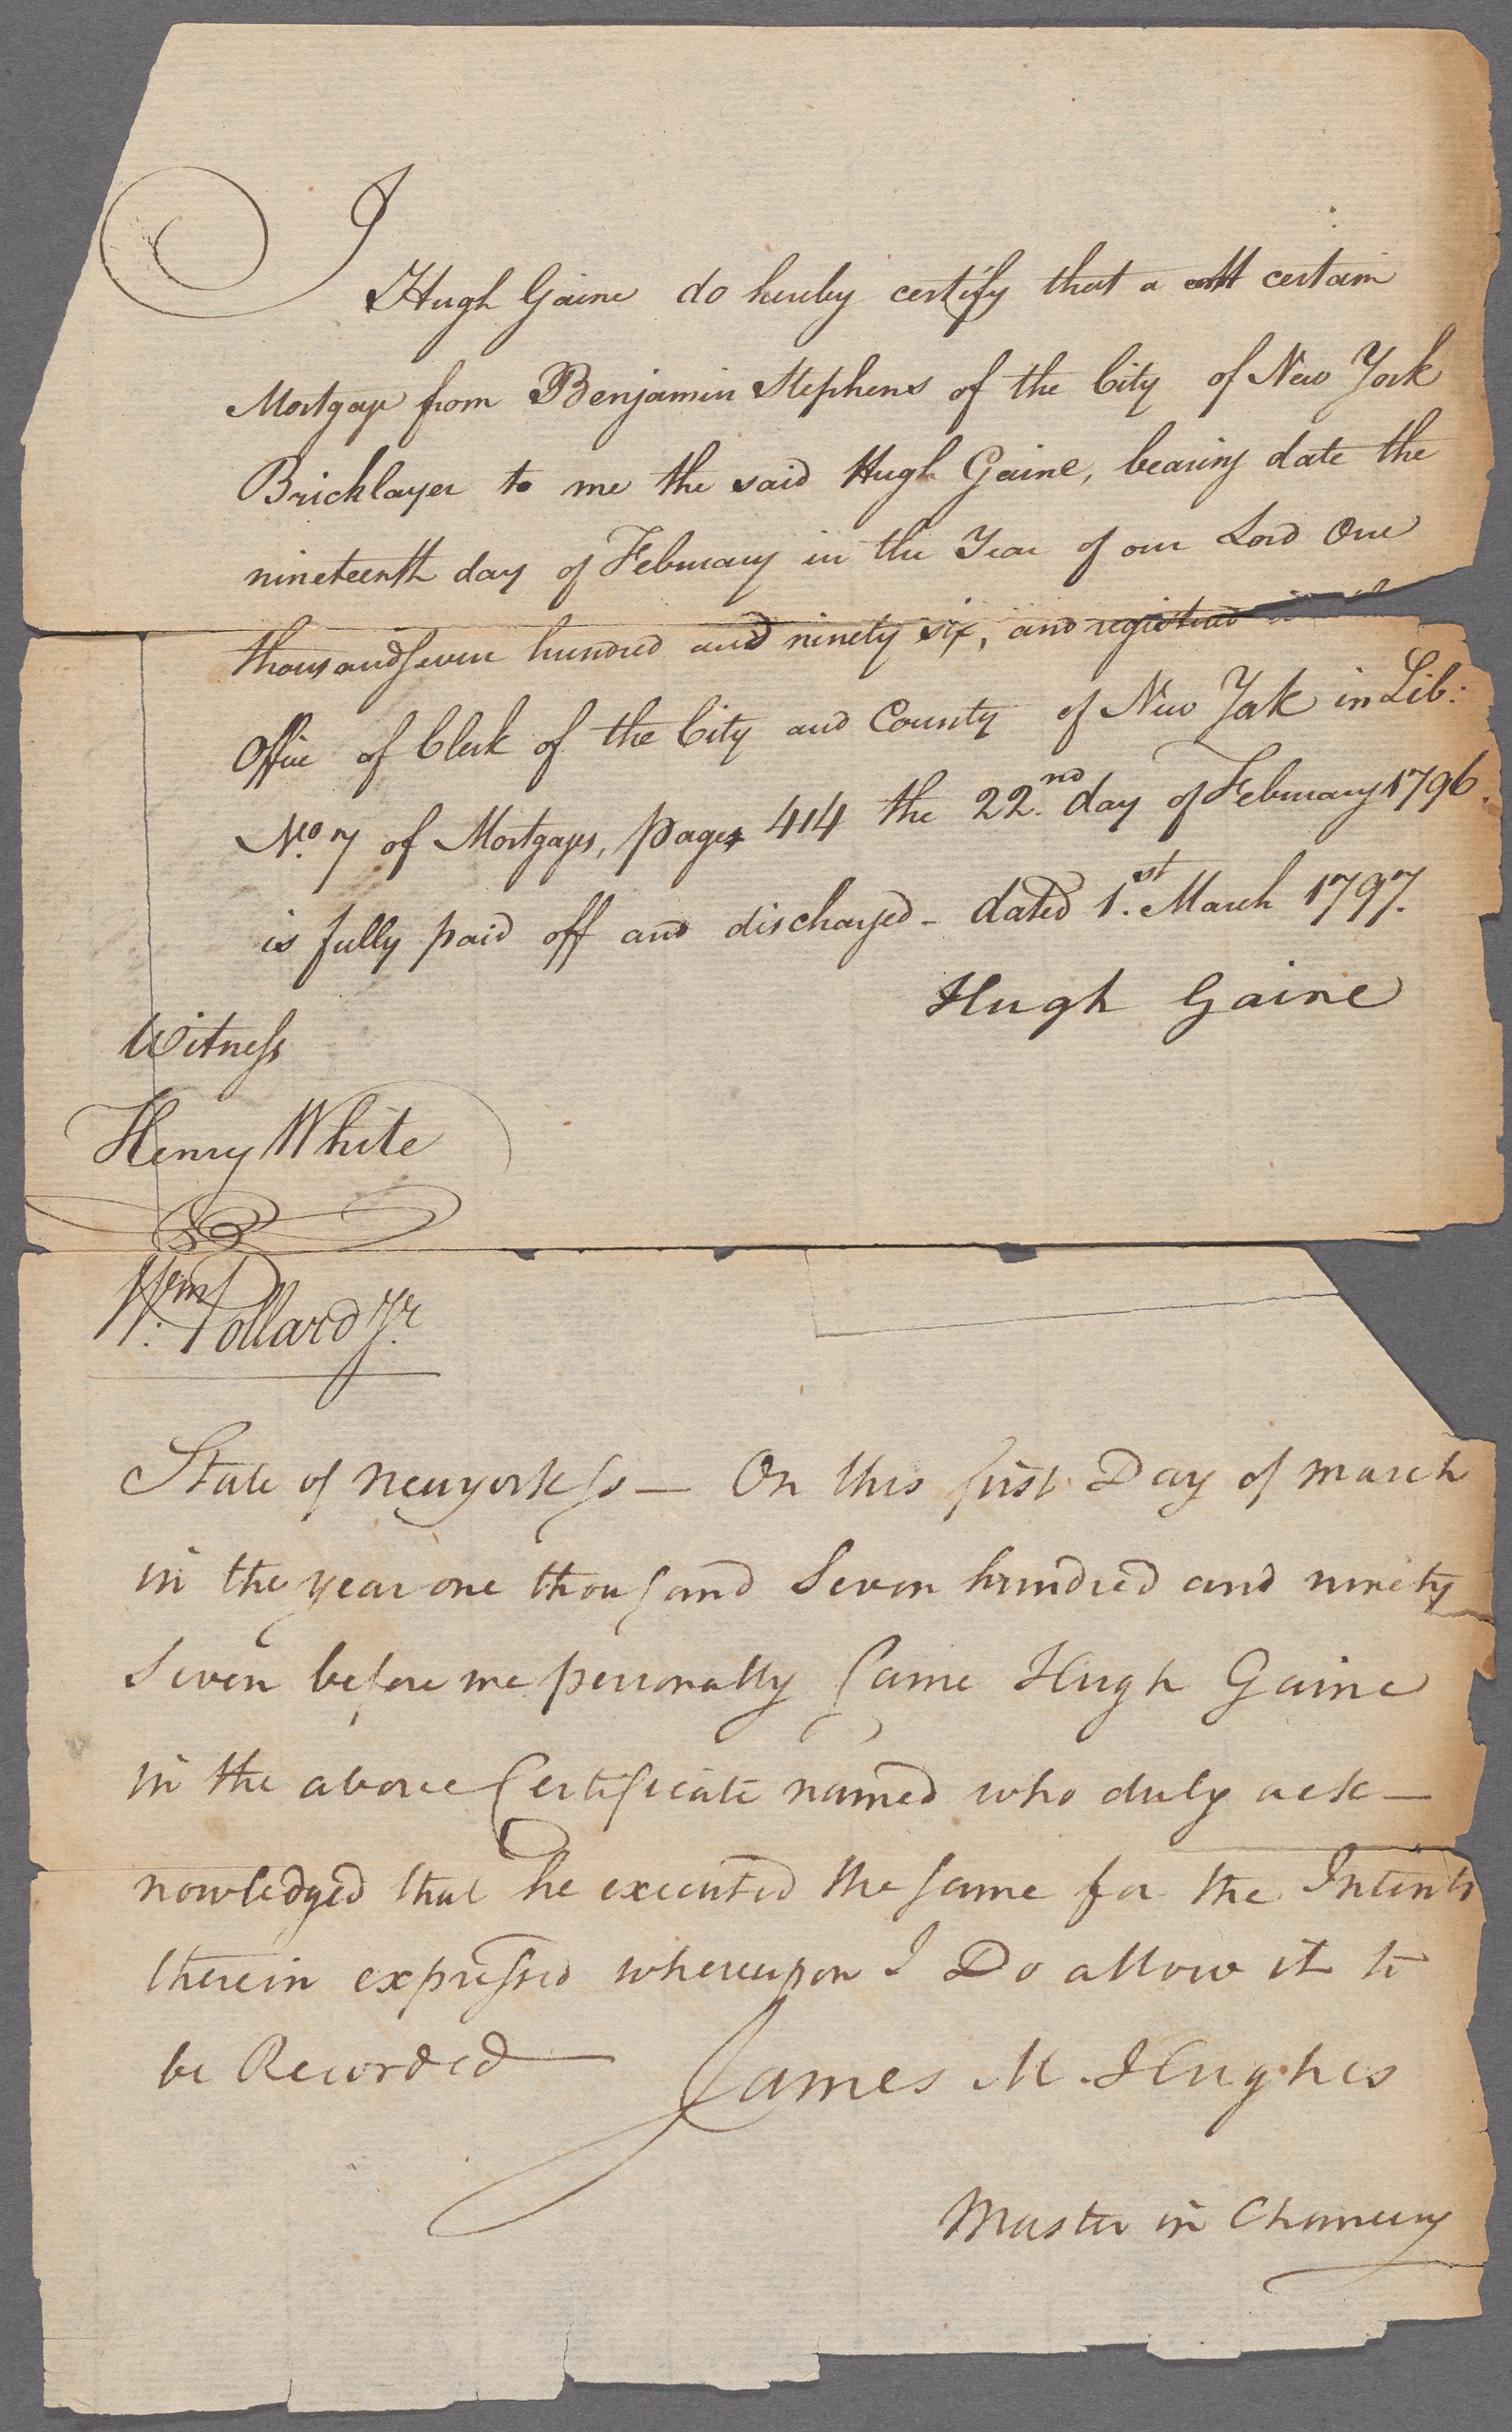 I
Hugh Gaine do hereby certify that a certain
Mortgage from Benjamin Stephens of the City of New York
Bricklayer to me the said Hugh Gaine, bearing date the
nineteenth day of February in the Year of our Lord One
thousand seven hundred and ninety six, and registered in the
Office of Clerk of the City and County of New York in Lib:
No. 7 of Mortgages, page 414 the 22.nd day of February 1796.
is fully paid off and discharged - dated 1.st March 1797.
Hugh Gaine
Witness
Henry White
Wm. Pollard Jr.
State of Newyork ss — On this first Day of March
in the year one thousand Seven hundred and ninety
Seven before me personally Came Hugh Gaine
in the above Certificate named who duly ack—
nowledged that he executed the same for the Intents
therein expressed whereupon I Do allow it to
be Recorded — James M. Hughes
Master in Chancery